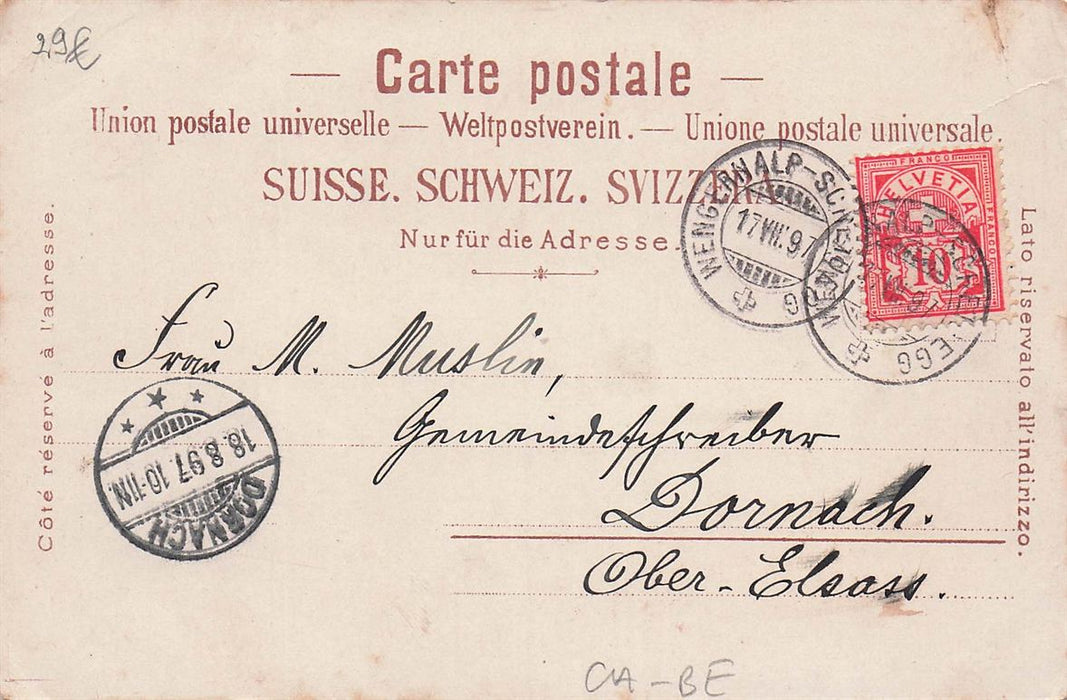 29€
— Carte postale —
Union postale universelle — Weltpostverein. — Unione postale universale.
SUISSE. SCHWEIZ. SVIZZERA.
Nur für die Adresse.
Côté réservé à l'adresse.
Lato riservato all'indirizzo.
WENGERNALP-SCHEIDEGG
17.VIII.97
FRANCO
HELVETIA
FRANCO
10
Frau M. Muslin,
Gemeindeschreiber
Dornach.
Ober-Elsass.
DORNACH.
18.8.97.10-11N.
CA-BE